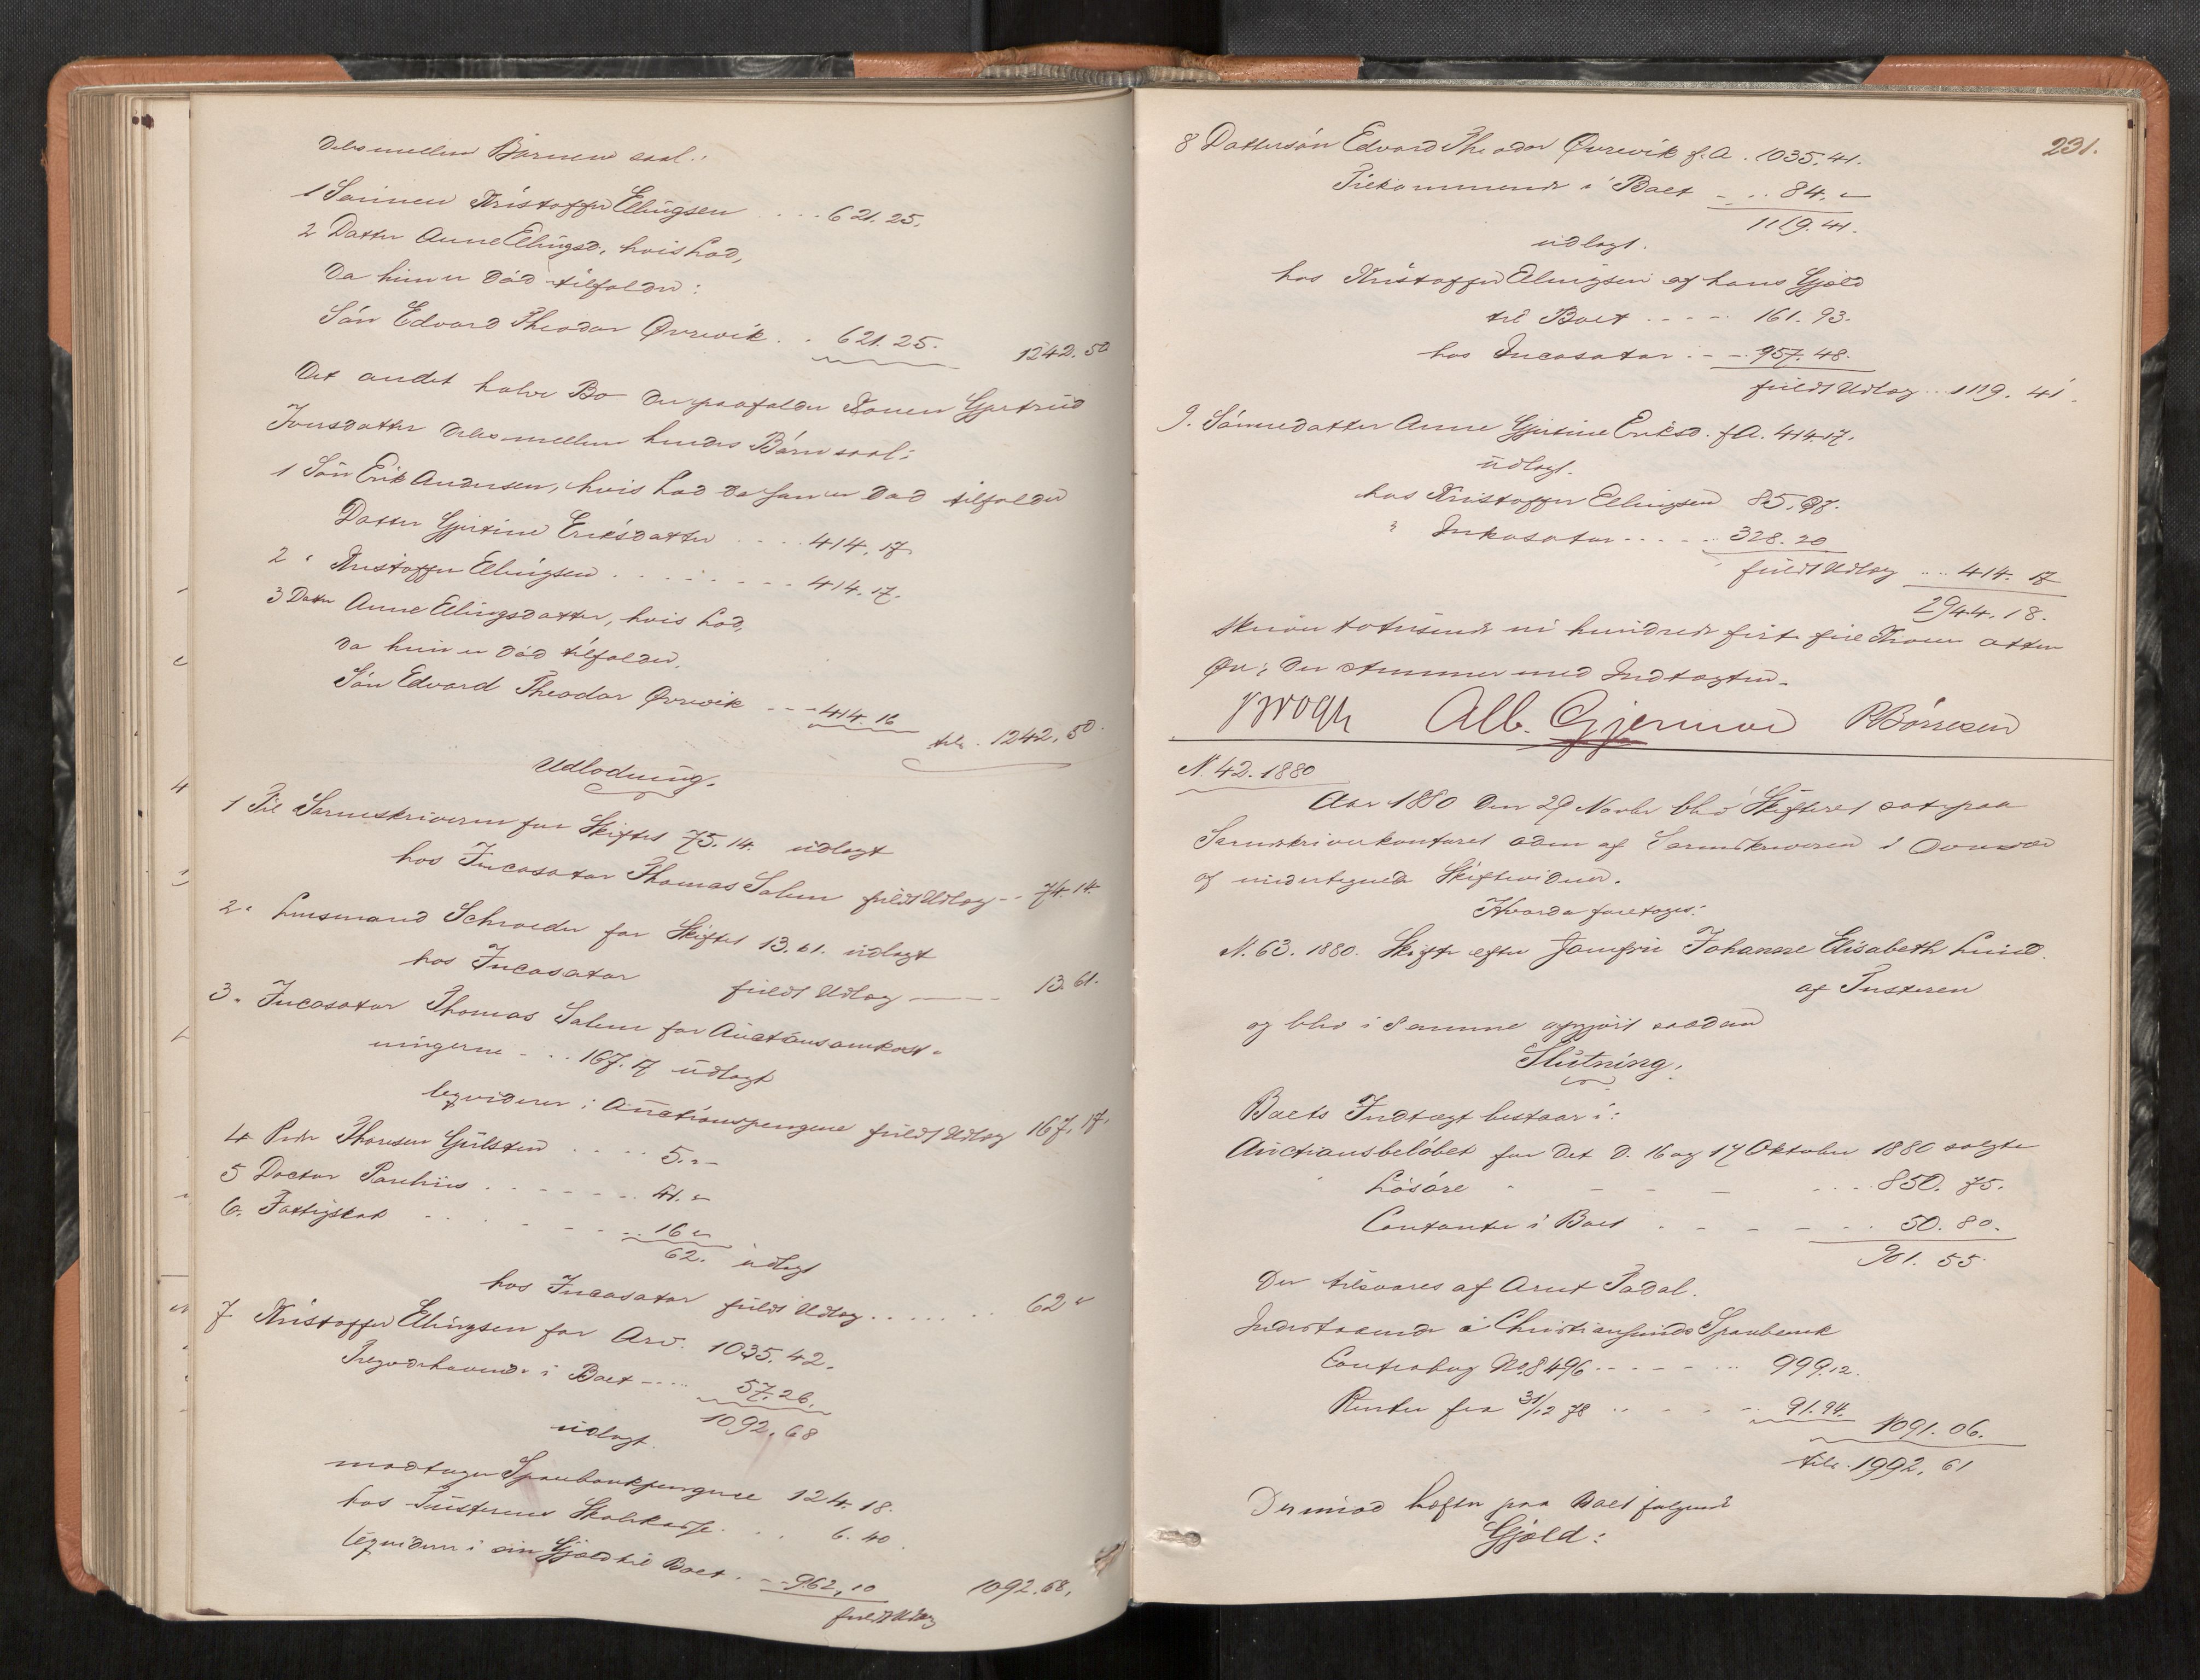 deles mellem Børnene saal.:
1 Sønnen Kristoffer Ellingsen . . . . 621. 25.
2 Datter Anne Ellingsd., hvis Lod,
da hun er død tilfalder:
Søn Edvard Theodor Ørrevik . . 621. 25. 1242. 50
Det andet halve Bo der paafalder Konen Gjertrud
Jonsdatter deles mellem hendes Børn saal:
1 Søn Erik Andersen, hvis Lod da han er død tilfalder
Datter Gjertine Eriksdatter . . . . 414. 17.
2 " Kristoffer Ellingsen . . . . . . . . 414. 17.
3 Datter Anne Ellingsdatter, hvis Lod,
da hun er død tilfalder,
Søn Edvard Theodor Ørrevik - - - 414. 16
tils. 1242. 50.
Udlodning.
1 Til Sorenskriveren for Skiftet 75. 14. udlagt
hos Incasator Thomas Solem fuldt Udlæg - - 74. 14.
2 " Lensmand Schroeder for Skiftet 13. 61. udlagt
hos Incasator fuldt Udlæg — 13. 61.
3. Incasator Thomas Solem for Auctionsomkost-
ningerne - . . 167. 17 udlagt
liqviderer i Auctionspengene fuldt Udlæg 167. 17.
4 Peder Thoresen Gulsten . . . . 5. " -
5 Doctor Parelius . - - - - - . . 41. "
6. Fattigskat . . . - - - . . 16 "
62. udlagt
hos Incasator fuldt Udlæg . . . . . . 62 "
7 Kristoffer Ellingsen for Arv. 1035. 42.
Tilgodehavende i Boet - . . . . 57. 26.
1092. 68
udlagt.
modtager Sparebankpengene 124. 18.
hos Tusterens Skolekasse . . . 6. 40.
liqviderer i sin Gjæld til Boet . - - 962, 10 1092. 68,
fuldt Udlæg
231.
8 Dattersøn Edvard Theodor Ørrevik f. A. 1035. 41.
Tilkommende i Boet - . . 84. "
1119. 41.
udlagt.
hos Kristoffer Ellingsen af hans Gjæld
til Boet . - - - . 161. 93.
hos Incasator . - - 957. 48.
fuldt Udlæg . . 1119. 41.
9. Sønnedatter Anne Gjertine Eriksd. f A. 414. 17.
udlagt.
hos Kristoffer Ellingsen 85. 97.
" Inkasator . - - . . 328. 20
fuldt Udlæg . . . 414. 17
2944. 18.
Skriver totusende ni hundrede firti fire Kroner atten
Øre; der stemmer med Indtægten.
Brogh Alb. Gjermoe R Børresen
N. 42. 1880
Aar 1880 den 29 Novbr blev Skifteret sat paa
Sorenskriverkontoret admr af Sorenskriveren i
og undertegnede Skiftevidner.
Hvorda foretoges:
N. 63. 1880. Skifte efter Jomfru Johanne Elisabeth Lund.
af Tusteren
og blev i samme opgjort saadan
Slutning:
Boets Indtægt bestaar i:
Auctionsbeløbet for det d. 16 og 17 Oktober 1880 solgte
Løsøre - - - - . . . 850. 75.
Contanter i Boet . - - - - . 50. 80.
901. 55.
Der tilsvares af Arnt Todal.
Indestaaende i Christiansunds Sparebank
Contrabog No. 8496 . - - - - . . 999. 12.
Renter fra 31/12 78 . . . - - . 91. 94. 1091. 06.
tils. 1992, 61
Derimod hæfter paa Boet følgende
Gjæld: